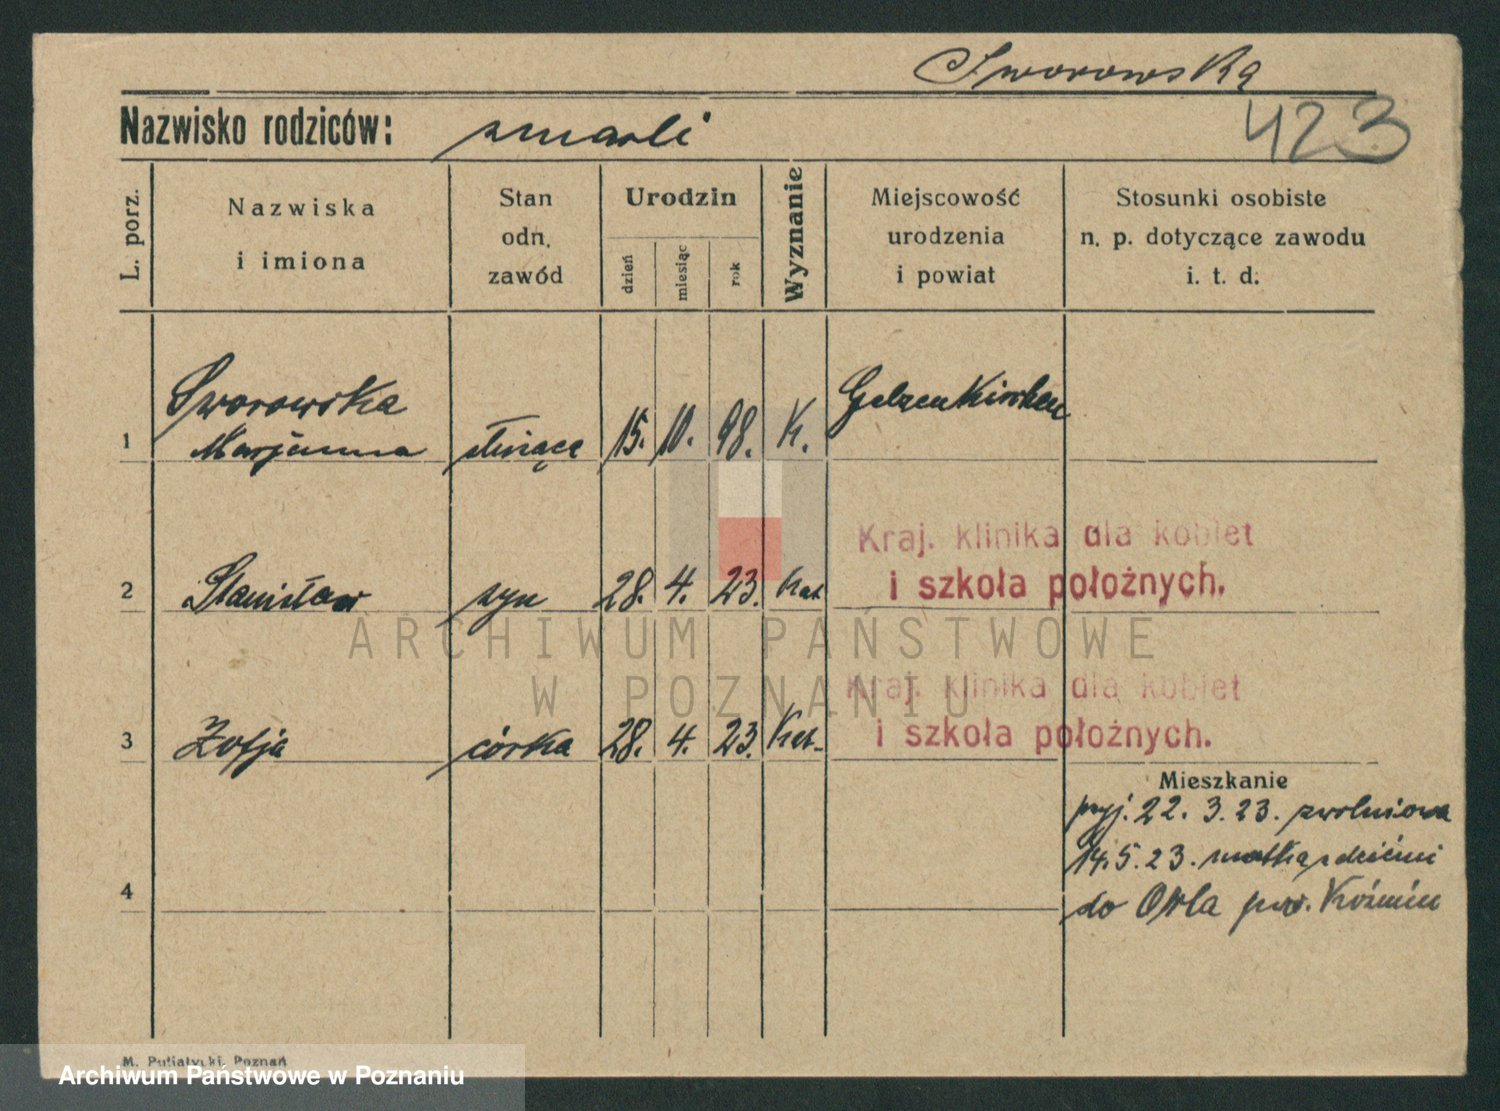 Sworowska
423
Nazwisko rodziców: zmarli
L. porz.
Nazwiska
i imiona
Stan
odn.
zawód
Urodzin
dzień
miesiąc
rok
Wyznanie
Miejscowość
urodzenia
i powiat
Stosunki osobiste
n. p. dotyczące zawodu
i. t. d.
1 Sworowska
Marjanna służąca 15. 10. 98. K. Gelzenkirchen
Kraj. klinika dla kobiet
i szkoła położnych.
2 Stanisław syn 28. 4. 23. Kat
Kraj. klinika dla kobiet
i szkoła położnych.
3 Zofja córka 28. 4. 23. Kat.
Mieszkanie
przyj. 22. 3. 23. zwolniona
14. 5. 23. matka z dziećmi
do Orla pow. Koźmin
4
ARCHIWUM PAŃSTWOWE
W POZNANIU
M. Putiatycki, Poznań
Archiwum Państwowe w Poznaniu